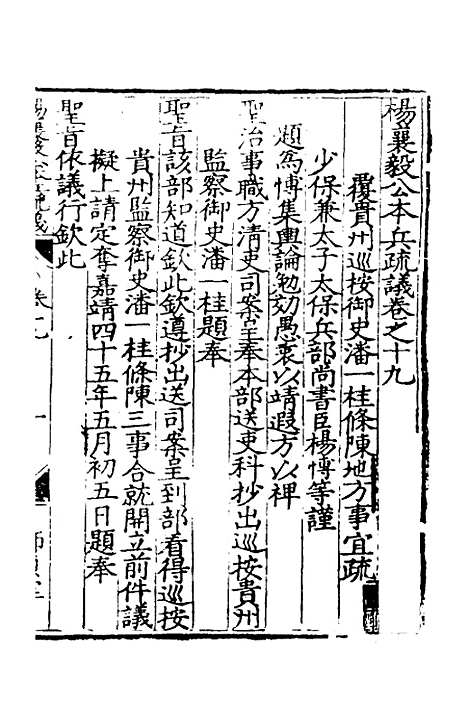 楊襄毅公本兵疏議卷之十九
覆貴州巡按御史潘一桂條陳地方事宜疏
少保兼太子太保兵部尚書臣楊博等謹
題爲博集輿論勉効愚衷以靖遐方以裨
聖治事職方清吏司案呈奉本部送吏科抄出巡按貴州
監察御史潘一桂題奉
聖旨該部知道欽此欽遵抄出送司案呈到部看得巡按
貴州監察御史潘一桂條陳三事合就開立前件議
擬上請定奪嘉靖四十五年五月初五日題奉
聖旨依議行欽此